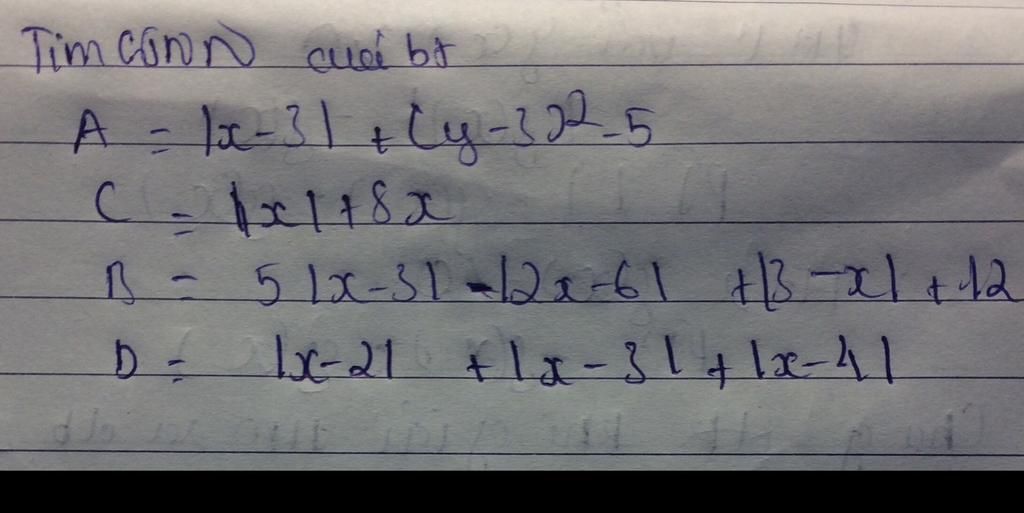 Tìm GTNN của bt
A = |x-3| + (y-3)²-5
C = |x|+8x
B = 5|x-3| -|2x-6| +|3-x| + 12
D = |x-2| + |x-3| + |x-4|